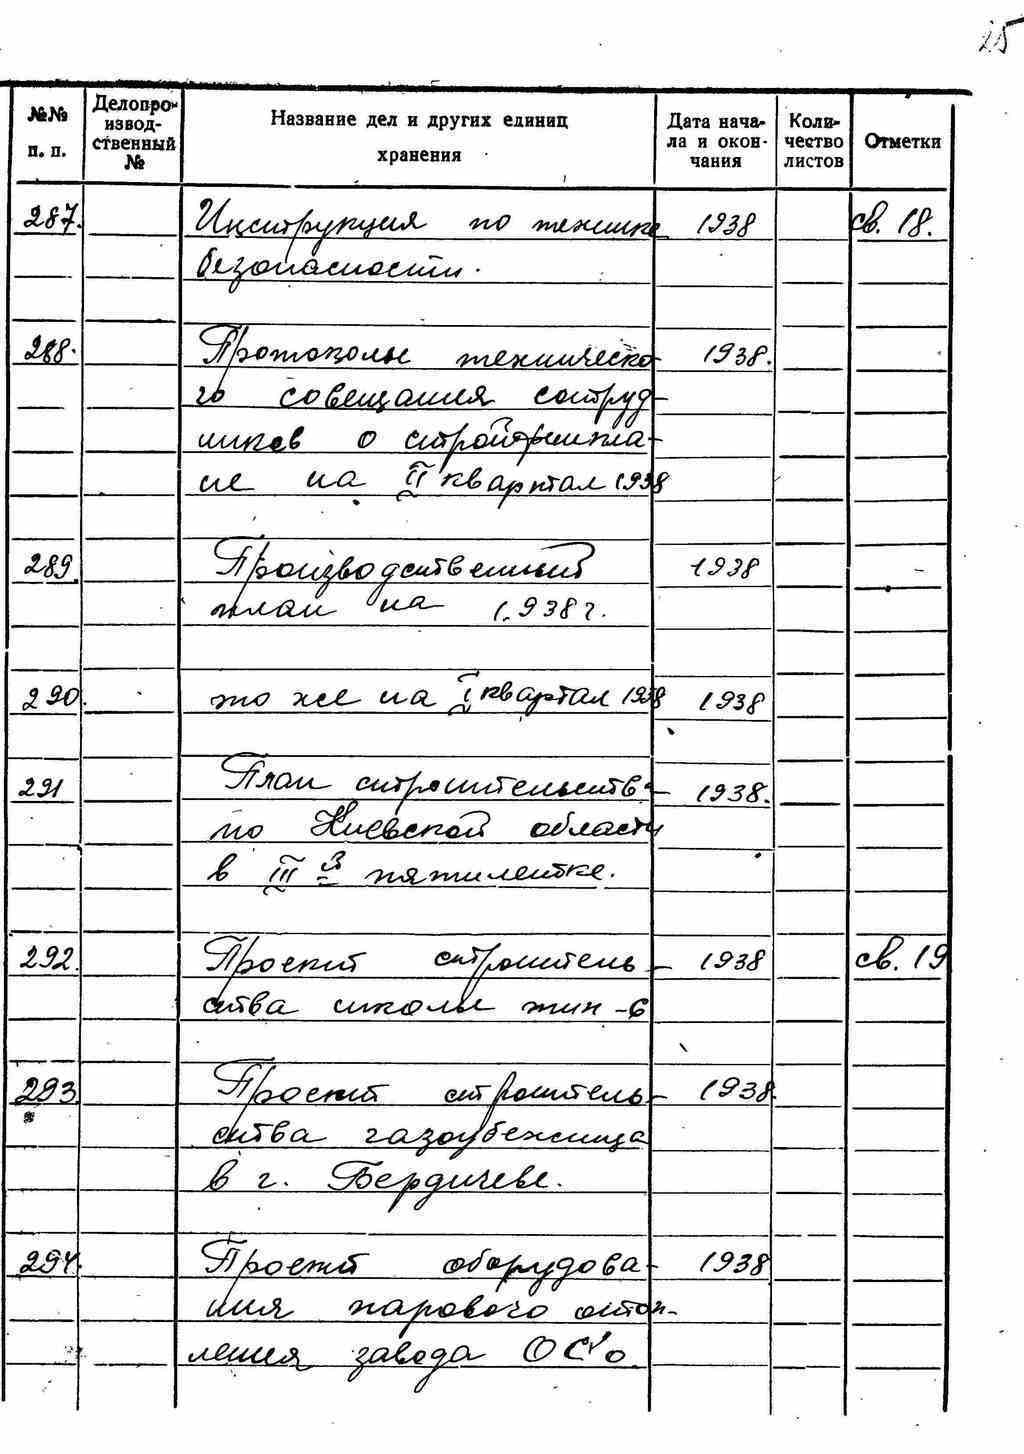 25
№№ п. п. Делопроизвод-ственный № Название дел и других единиц хранения Дата нача-ла и окон-чания Коли-чество листов Отметки
287. Инструкция по технике 1938 св. 18.
безопасности.
288. Протоколы техническо- 1938.
го совещания сотруд-
ников о стройфинпла-
не на II квартал 1938
289. Производственный 1938
план на 1938 г.
290. то же на I квартал 1938 1938
291 План строительства 1938.
по Киевской области
в III й пятилетке.
292. Проект строитель- 1938 св. 19
ства школы тип-6
293. Проект строитель- 1938.
ства газоубежища
в г. Бердичеве.
294. Проект оборудова- 1938
ния парового отоп-
ления завода